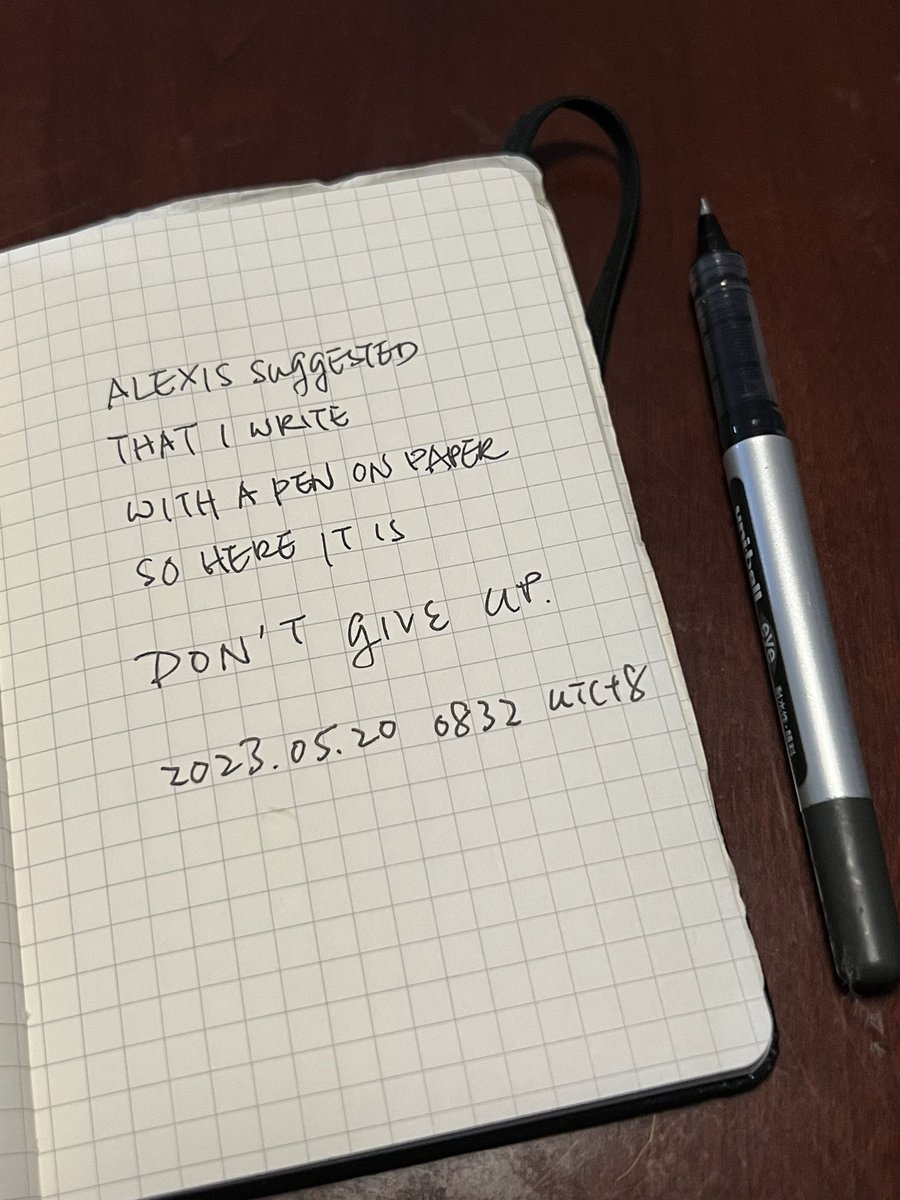 ALEXIS SUGGESTED
THAT I WRITE
WITH A PEN ON PAPER
SO HERE IT IS
DON'T GIVE UP.
2023.05.20 0832 UTC+8
uniball eye